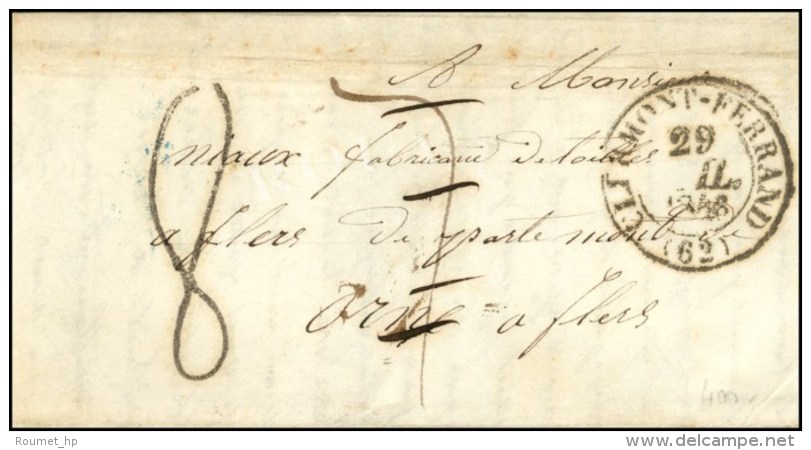 A Monsieur
niaux fabricane de toilles
a flers de partemont de
orne = a flers
8
7
CLERMONT-FERRAND
29
JL.
1848
(62)
400
Roumet_hp
delcampe.net